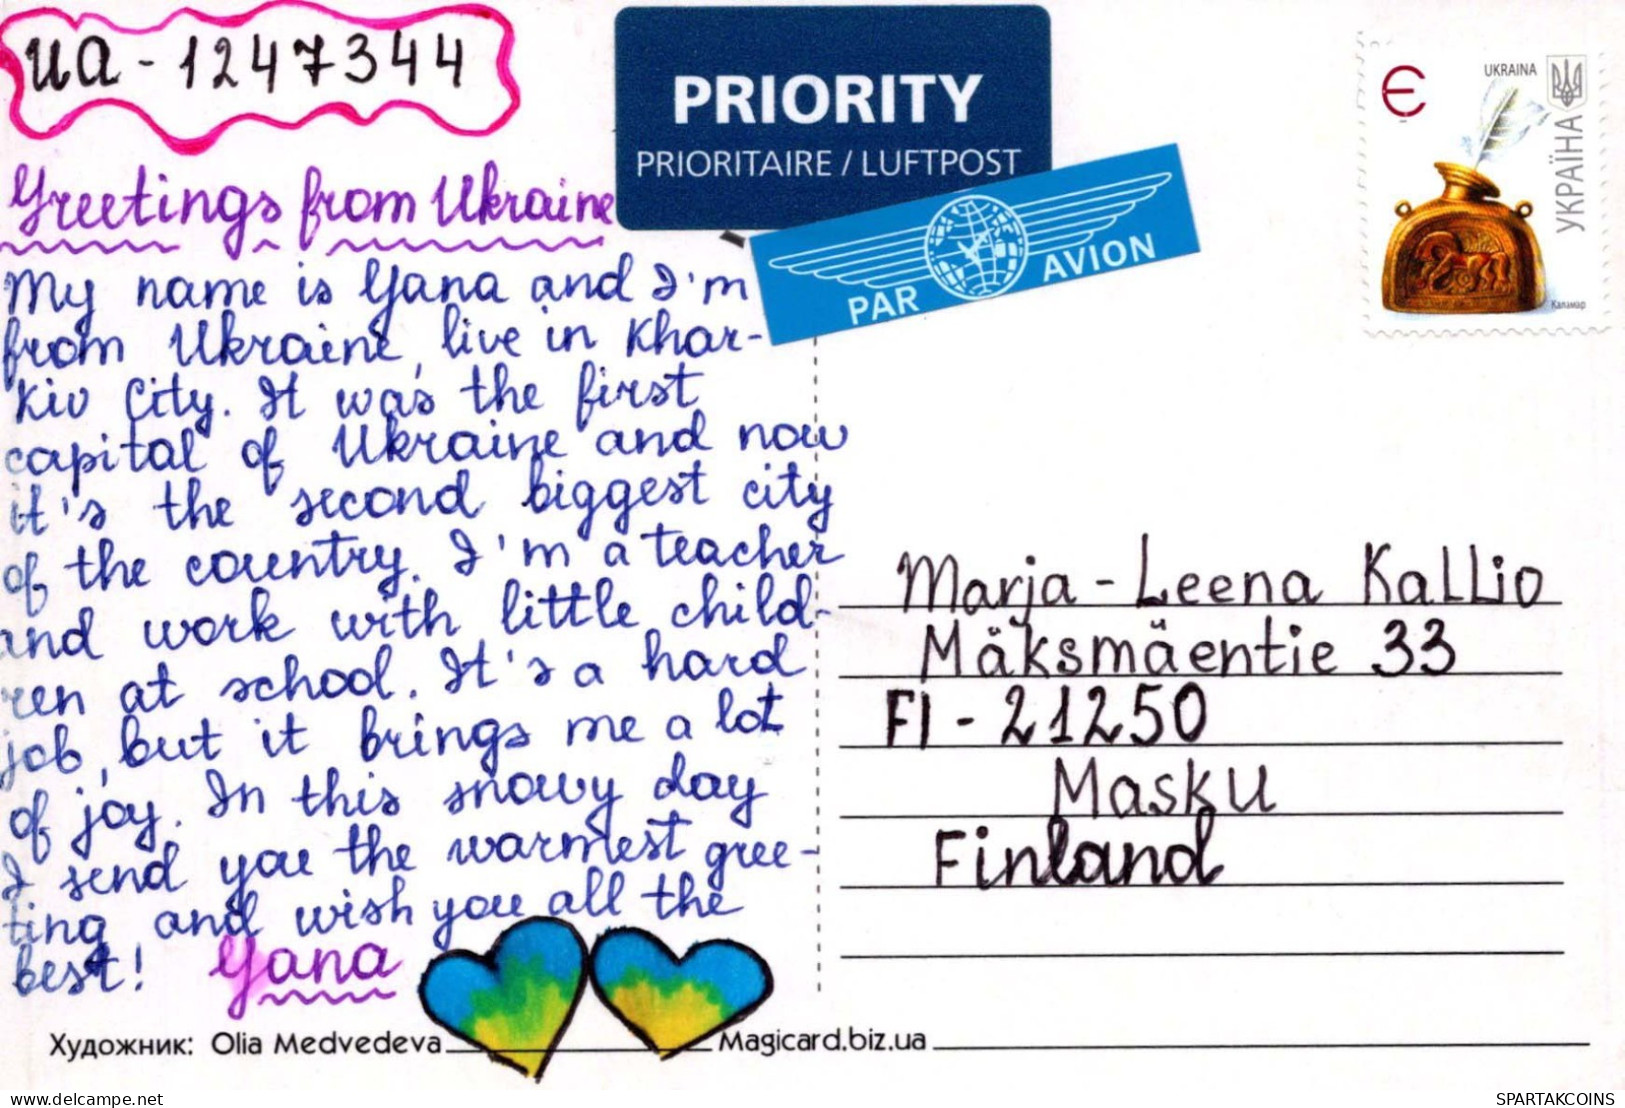 UA-1247344
PRIORITY
PRIORITAIRE / LUFTPOST
PAR AVION
Є
UKRAINA
УКРАЇНА
Каламар
Greetings from Ukraine
My name is Yana and I'm
from Ukraine, live in Khar-
kiv City. It was the first
capital of Ukraine and now
it's the second biggest city
of the country. I'm a teacher
and work with little child-
ren at school. It's a hard
job, but it brings me a lot
of joy. In this snowy day
I send you the warmest gree-
ting and wish you all the
best! Yana
Marja-Leena Kallio
Mäksmäentie 33
FI-21250
Masku
Finland
Художник: Olia Medvedeva
Magicard.biz.ua
www.delcampe.net
SPARTAKCOINS